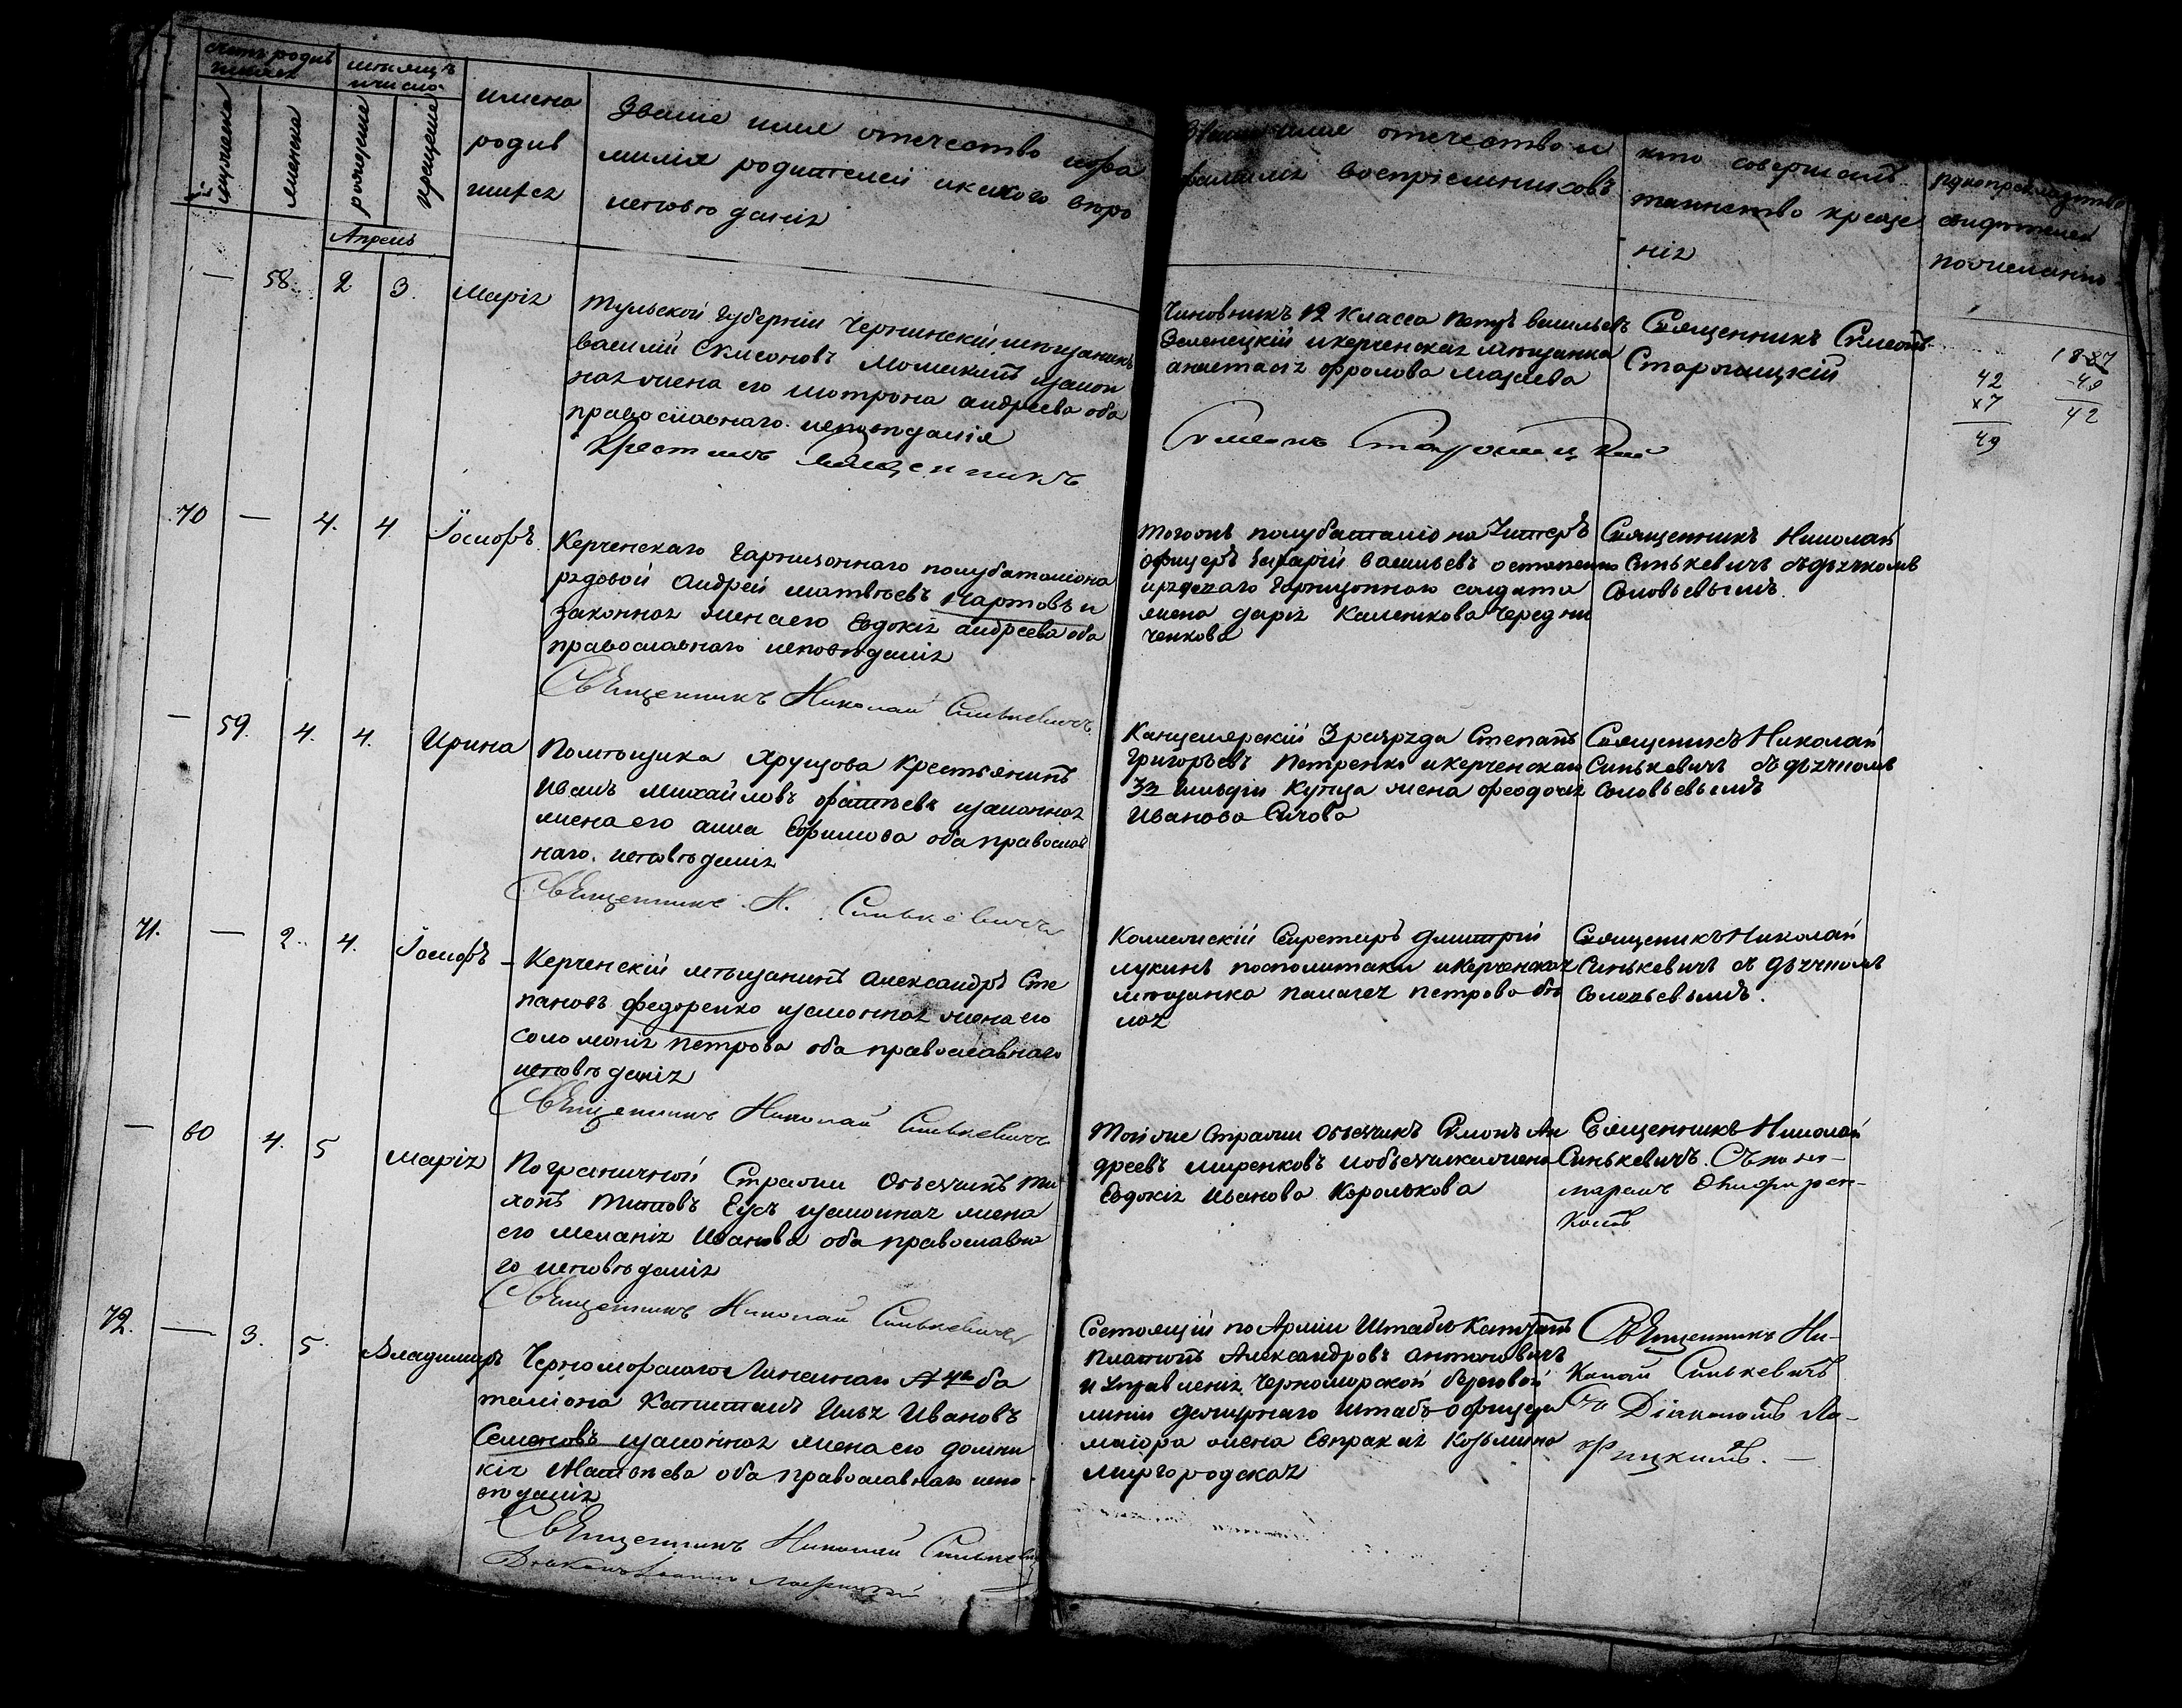 Счетъ родив
шихся
мѣсяцъ
и число
мужеска
женска
рожденіе
крещеніе
имена
родив
шихся
Званіе имя отечество и фа
милія родителей и какого вѣро
исповѣданія
Званіе имя отечество и
фамилія воспріемниковъ
кто совершалъ
таинство креще
нія
рукоприкладство
свидѣтелей
по желанію
Апрель
— 58. 2 3. Марія
Тульской Губерніи Чернинскій мѣщанинъ
василий Симоновъ закон
ная жена его Матрона андреева оба
православнаго исповѣданія
Крестилъ священникъ
Чиновникъ 12 класса Петръ васильевъ
Зеленецкій и керченская мѣщанка
анастасія фролова
Священникъ Симеонъ
Старошицкій
Симеонъ Старошицкий
1887
49
42
42
х7
49
70 — 4. 4 Іосифъ.
Керченскаго Гарнизоннаго полубаталіона
рядовой Андрей матвѣевъ Картовъ и
законная жена его Евдокія андреева оба
православнаго исповѣданія
Священникъ Николай Синькевичъ
Тогоже полубаталіона Унтеръ
офицеръ Захарій васильевъ
гарнизоннаго солдата
жена дарія Каленикова Чередни
ченкова
Священникъ Николай
Синькевичъ съ дьячкомъ
Соловьевымъ.
— 59. 4. 4. Ирина
Помѣщика Хрущова Крестьянинъ
Иванъ Михайловъ законная
жена его анна Ефимова оба православ
наго. исповѣданія
Священникъ Н. Синькевичъ
Канцелярскій 3 разряда Степанъ
Григорьевъ Петренко и керченскаго
3й Гильдіи Купца жена феодосія
Иванова
Священикъ Николай
Синькевичъ съ дьячкомъ
Соловьевымъ
71. — 2. 4. Іосифъ
Керченскій мѣщанинъ Александръ Сте
пановъ федоренко законная жена его
соломонія петрова оба православнаго
исповѣданія
Священникъ Николай Синькевичъ
Колежскій Секретарь дмитрий
лукинъ и керченская
мѣщанка палагея петрова бѣ
лая
Священикъ Николай
Синькевичъ съ дьячкомъ
Соловьевымъ.
— 60 4. 5 Марія
Пограничной Стражи Объезчикъ Ти
хонъ Титовъ Гусъ законная жена
его меланія Иванова оба православна
го исповѣданія
Священникъ Николай Синькевичъ
Той же Стражи Объезчикъ Симонъ Ан
дреевъ миренковъ и объезчика жена
Евдокія Иванова Королькова
Священникъ Николай
Синькевичъ. Съ поно-
маремъ
72. — 3. 5. Владимиръ
Черноморскаго Линейнаго № 4го ба
таліона Капитанъ Илья Ивановъ
Семеновъ законная жена его домни
кія Матвѣева оба православнаго испо
вѣданія
Священникъ Николай Синькевичъ
Состоящій по Арміи Штабсъ Капитанъ
Платонъ Александровъ антоновичъ
и управленія Черноморской береговой
линіи дежурнаго штабъ-офицера
маіора жена Евпраксія Козьмина
миргородская
Священникъ Ни-
колай Синькевичъ
Съ Діакономъ